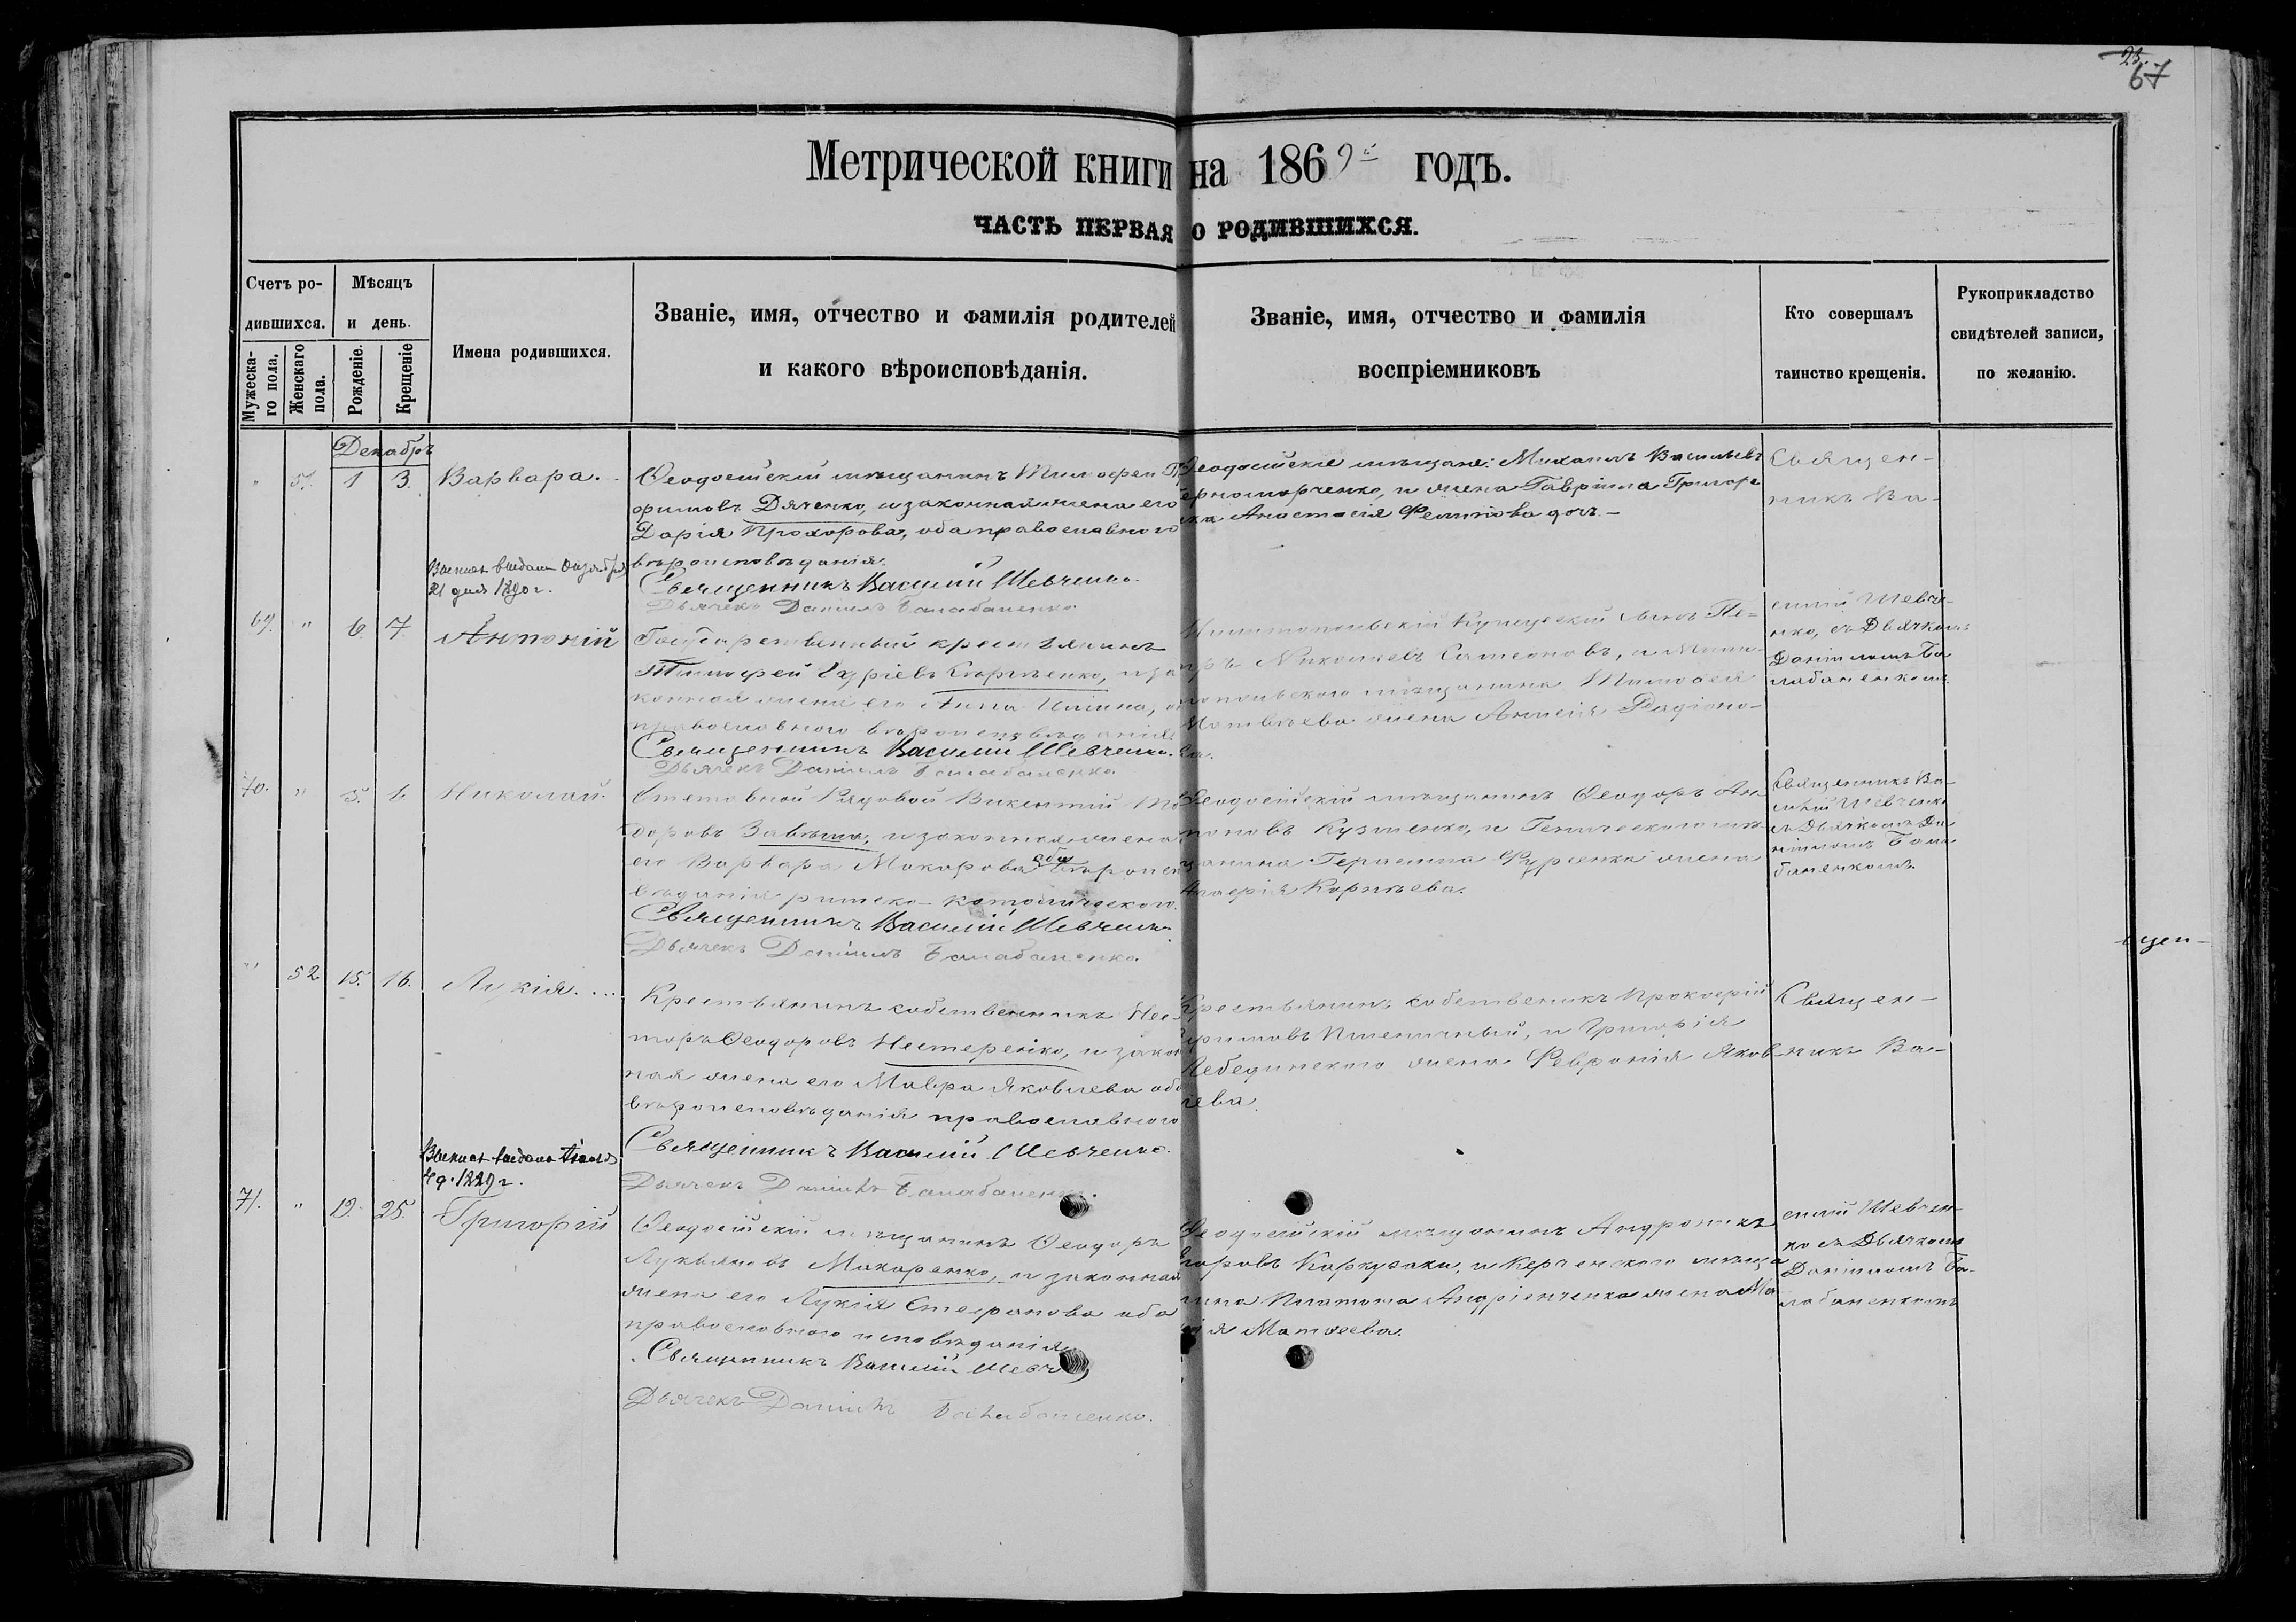 25.
67
Метрической книги на 1869й годъ.
ЧАСТЬ ПЕРВАЯ О РОДИВШИХСЯ.
Счетъ родившихся.
Мужеска-
го пола.
Женскаго
пола.
Мѣсяцъ
и день.
Рожденіе.
Крещеніе
Имена родившихся.
Званіе, имя, отчество и фамилія родителей
и какого вѣроисповѣданія.
Званіе, имя, отчество и фамилія
воспріемниковъ
Кто совершалъ
таинство крещенія.
Рукоприкладство
свидѣтелей записи,
по желанію.
Декабрь
" 51. 1 3. Варвара.
Ѳеодосійскій мѣщанинъ Тимофей
фимовъ Дяченко, и законная жена его
Дарія Прохорова, оба православнаго
вѣроисповѣданія.
Священникъ Василій Шевченко.
Дьячекъ Даніилъ Балабаненко
Ѳеодосійскіе мѣщане: Михаилъ Васильевъ
и жена Гавріила
Анастасія Филипова дочь.
Священ-
никъ Ва-
21 дня 1890 г.
69. " 6. 7. Антоній
Государственный крестьянинъ
Тимофей и за
конная жена его Анна Ильина,
православнаго вѣроисповѣданія
Священникъ Василій Шевченко.
Дьячекъ Даніилъ Балабаненко
Купеческій сынъ Пе-
тръ Николаевъ Самсоновъ, и Мели-
топольскаго мѣщанина Тимофея
Матвѣева жена Анисія Радіоно-
ва.
силій Шевче-
нко, съ Дьячкомъ
Даніиломъ Ба
лабаненкомъ
70. " 5. 6. Николай.
Рядовой Викентій
доровъ и законная жена
его Варвара Макарова оба вѣроиспо
вѣданія римско-католическаго.
Священникъ Василій Шевченко
Дьячекъ Даніилъ Балабаненко.
Ѳеодосійскій мѣщанинъ Ѳеодоръ Ан-
поновъ Кузменко, и Геническаго мѣ
щанина Герасима Фурсенка жена
Корнѣева.
Священникъ Ва-
силій Шевченко
съ Дьячкомъ Да
ніиломъ Бала
баненкомъ.
" 52. 15. 16. Лукія....
Крестьянинъ собственникъ Нес
торъ Ѳеодоровъ Нестеренко, и закон
ная жена его Мавра Яковлева оба
вѣроисповѣданія православнаго
Священникъ Василій Шевченко.
Дьячекъ Даніилъ Балабаненко.
Крестьянинъ собственикъ Прокофій
Пшеничный, и Григорія
Лебединскаго жена Февронія Яков-
лева.
Священ-
никъ Ва-
щен-
71. " 19. 25. Григорій
Ѳеодосійскій мѣщанинъ Ѳеодоръ
Лукьяновъ Макаренко, и законная
жена его Лукія Стефанова оба
православнаго исповѣданія
Священникъ Василій Шевч
Дьячекъ Даніилъ Балабаненко.
Ѳеодосійскій мѣщанинъ Андроникъ
и Керченскаго мѣща
нина Платона Андріенченка жена Ма
рія Матѳеева.
силій Шевчен-
ко съ Дьячкомъ
Даніиломъ Ба-
лабаненкомъ